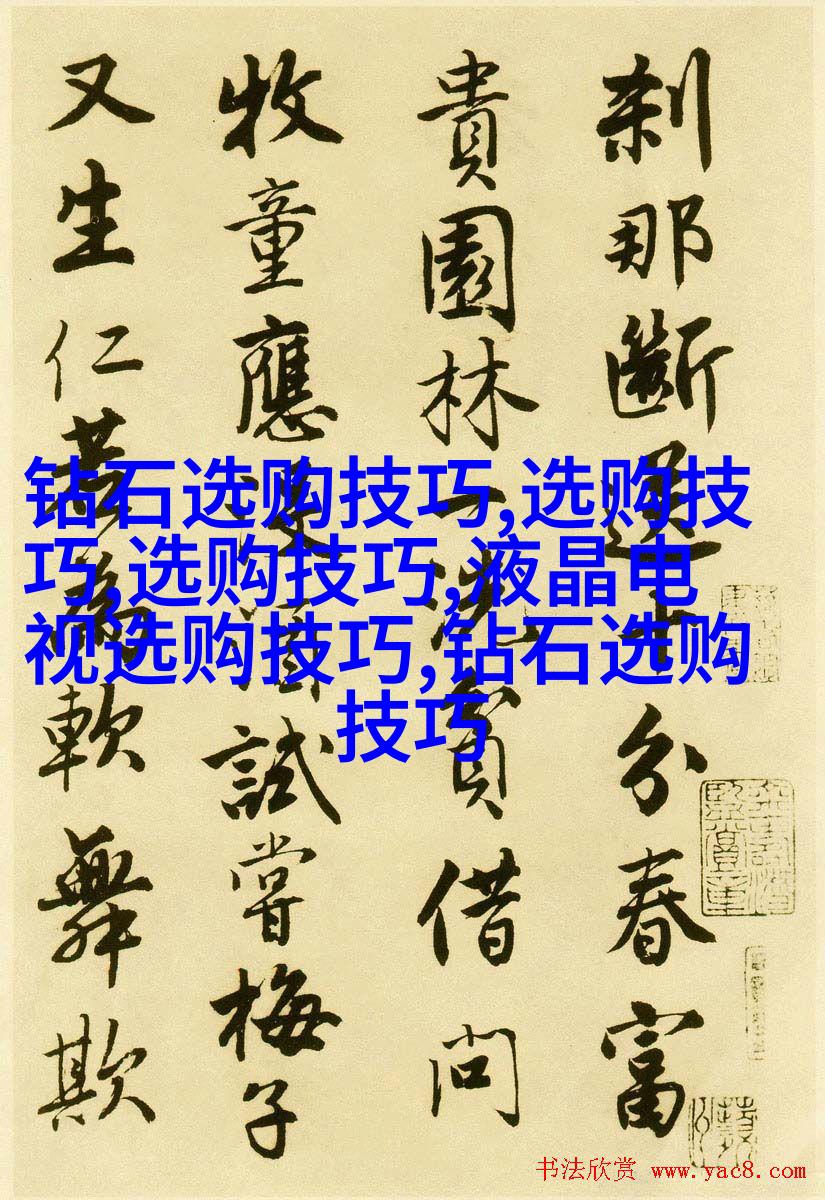 刹那斷送十分春富
貴園林一洗貧借問
牧童應沒酒試嘗梅子
又生仁若為軟舞欺
钻石选购技巧,选购技
巧,选购技巧,液晶电
视选购技巧,钻石选购
技巧
书法欣赏 www.yac8.com